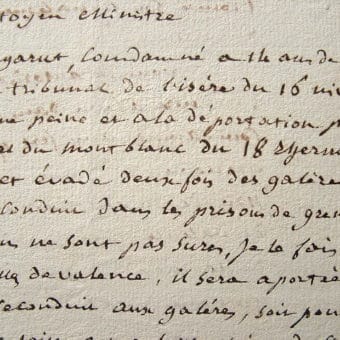 toyen Ministre
garut, Condamné a th ans de
tribunal de l'isére du 16 niv
ne peine et a la déportation p
du montblanc du 18 
et évadé deux fois des galére
Conduire dans les prisons de gren
ne sont pas sures, Je le fais
de valence, il sera aporté
econduit aux galéres, soit pou